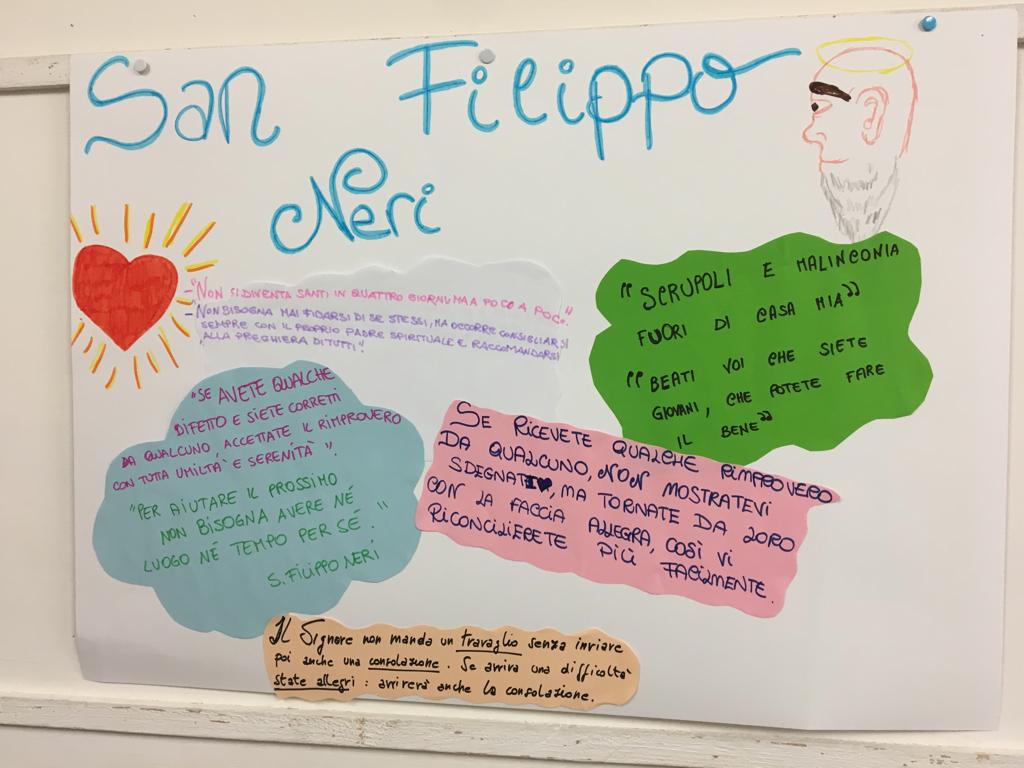 San Filippo
Neri
-"NON SI DIVENTA SANTI IN QUATTRO GIORNI MA A POCO A POCO".
-NON BISOGNA MAI FIDARSI DI SE STESSI, MA OCCORRE CONSIGLIARSI
SEMPRE CON IL PROPRIO PADRE SPIRITUALE E RACCOMANDARSI
ALLA PREGHIERA DI TUTTI."
"SCRUPOLI E MALINCONIA
FUORI DI CASA MIA"
"BEATI VOI CHE SIETE
GIOVANI, CHE POTETE FARE
IL BENE"
"SE AVETE QUALCHE
DIFETTO E SIETE CORRETTI
DA QUALCUNO, ACCETTATE IL RIMPROVERO
CON TUTTA UMILTÀ E SERENITÀ".
"PER AIUTARE IL PROSSIMO
NON BISOGNA AVERE NÉ
LUOGO NÉ TEMPO PER SÉ."
S. FILIPPO NERI
SE RICEVETE QUALCHE RIMPROVERO
DA QUALCUNO, NON MOSTRATEVI
SDEGNATI, MA TORNATE DA LORO
CON LA FACCIA ALLEGRA, COSÌ VI
RICONCILIERETE PIÙ FACILMENTE.
Il Signore non manda un travaglio senza inviare
poi anche una consolazione. Se arriva una difficoltà
state allegri: arriverà anche la consolazione.